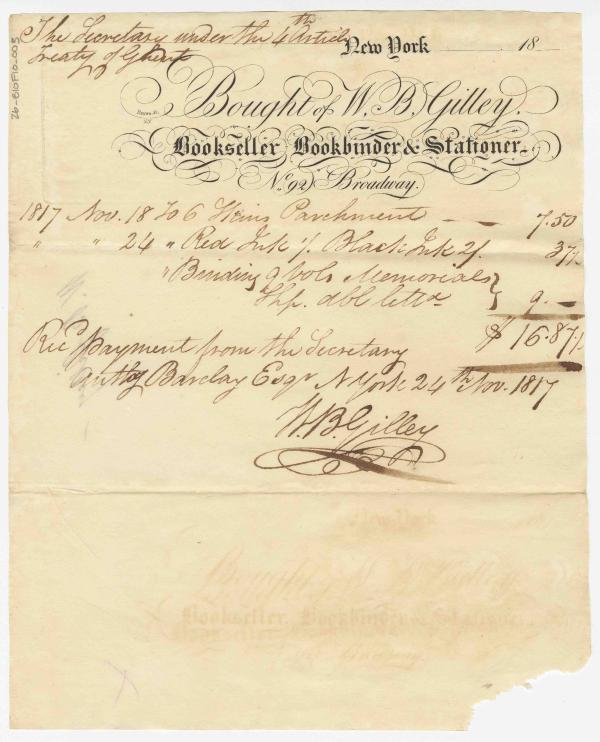 The Secretary under the 4th Article
Treaty of Ghent
New York 18
Bought of W. B. Gilley.
Bookseller Bookbinder & Stationer.
No. 92 Broadway.
1817 Nov. 18 To 6 Skins Parchment — 7.50
" " 24 " Red Ink 1/. Black Ink 2/. 37½
" Binding 9 vols Memorials
Shp. dbl letter } 9. —
$ 16.87½
Rec payment from the Secretary
Anthy Barclay Esqr N York 24th Nov. 1817
W. B. Gilley
26-B10F10-005